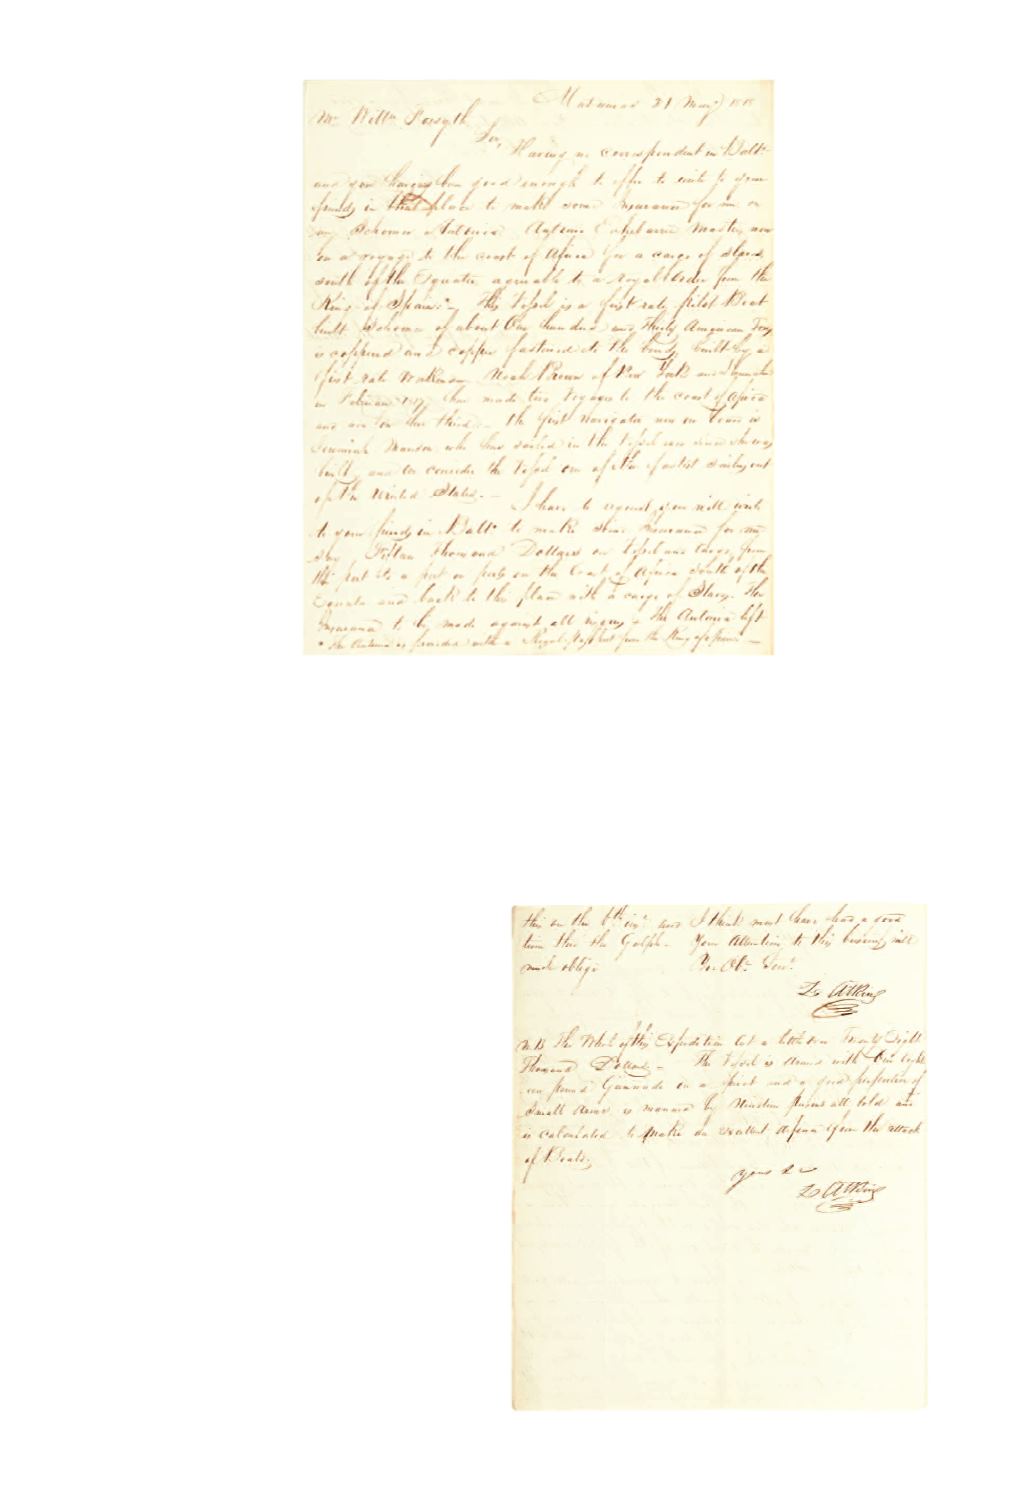 Matanzas 21 May 1818
Mr. Willm Forsyth
Sir,
Having no correspondent in Balto.
and you having been good enough to offer to write to your
friends in that place to make some Insurance for me on
my Schooner Antonia, Antonio Master, now
on a voyage to the coast of Africa for a cargo of slaves,
south of the Equator, agreeable to a royal order from the
King of Spain.* This Vessel is a first rate pilot Boat
built Schooner of about One hundred and Thirty American Tons
is coppered and copper fastened to the bends, built by a
first rate workman Noah Brown of New York and launched
in 1817, has made two Voyages to the coast of Africa
and now on her third. – the first navigator now on board is
Jeremiah who has sailed in the Vessel ever since she was
built, and we consider the Vessel one of the fastest sailing out
of the United States. –
I have to request you will write
to your friends in Balto. to make some Insurance for me
say Fifteen Thousand Dollars on Vessel and Cargo, from
this port to a port or ports on the Coast of Africa South of the
Equator and back to this place with a cargo of Slaves. The
Insurance to be made against all risques – the Antonia left
* the Antonia is provided with a Royal passport from the King of Spain. –
this on the 6th inst. and I think must have had a good
time thro the Gulph – Your Attention to this business will
much oblige Yr. Obt. Servt.
Z Atkins
N.B The Whole of this Expedition cost a little over Twenty Eight
Thousand Dollars – The Vessel is armed with One eight
een pound Gunnade on a pivot and a good proportion of
Small Arms, is manned by Nineteen persons all told and
is calculated to make an excellent defence from the attack
of Boats,
yours &c
Z Atkins